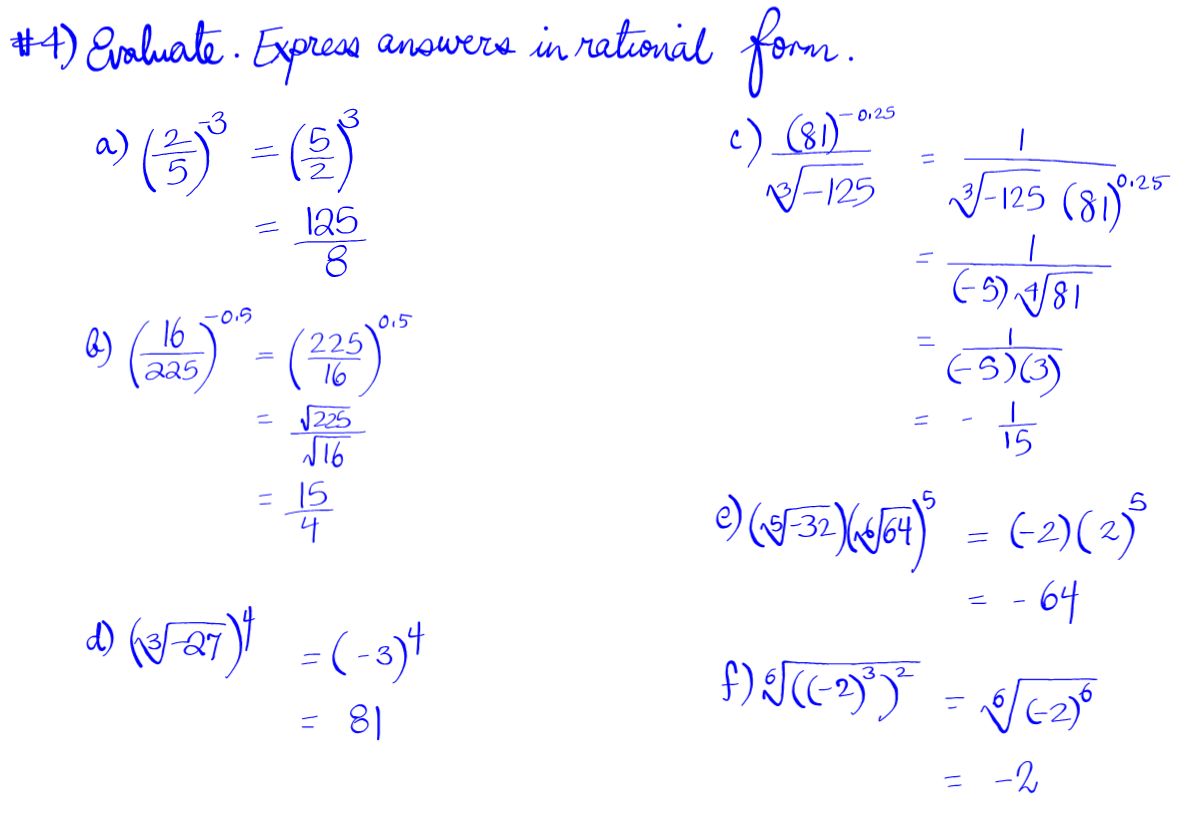 #4) Evaluate. Express answers in rational form.
a) (2/5)^-3 = (5/2)^3
= 125/8
b) (16/225)^-0.5 = (225/16)^0.5
= √225/√16
= 15/4
d) (∛-27)^4 = (-3)^4
= 81
c) (81)^-0.25/∛-125 = 1/(∛-125 (81)^0.25)
= 1/((-5) ∜81)
= 1/((-5)(3))
= - 1/15
e) (⁵√-32)(⁶√64)^5 = (-2)(2)^5
= - 64
f) ⁶√((-2)^3)^2 = ⁶√(-2)^6
= -2